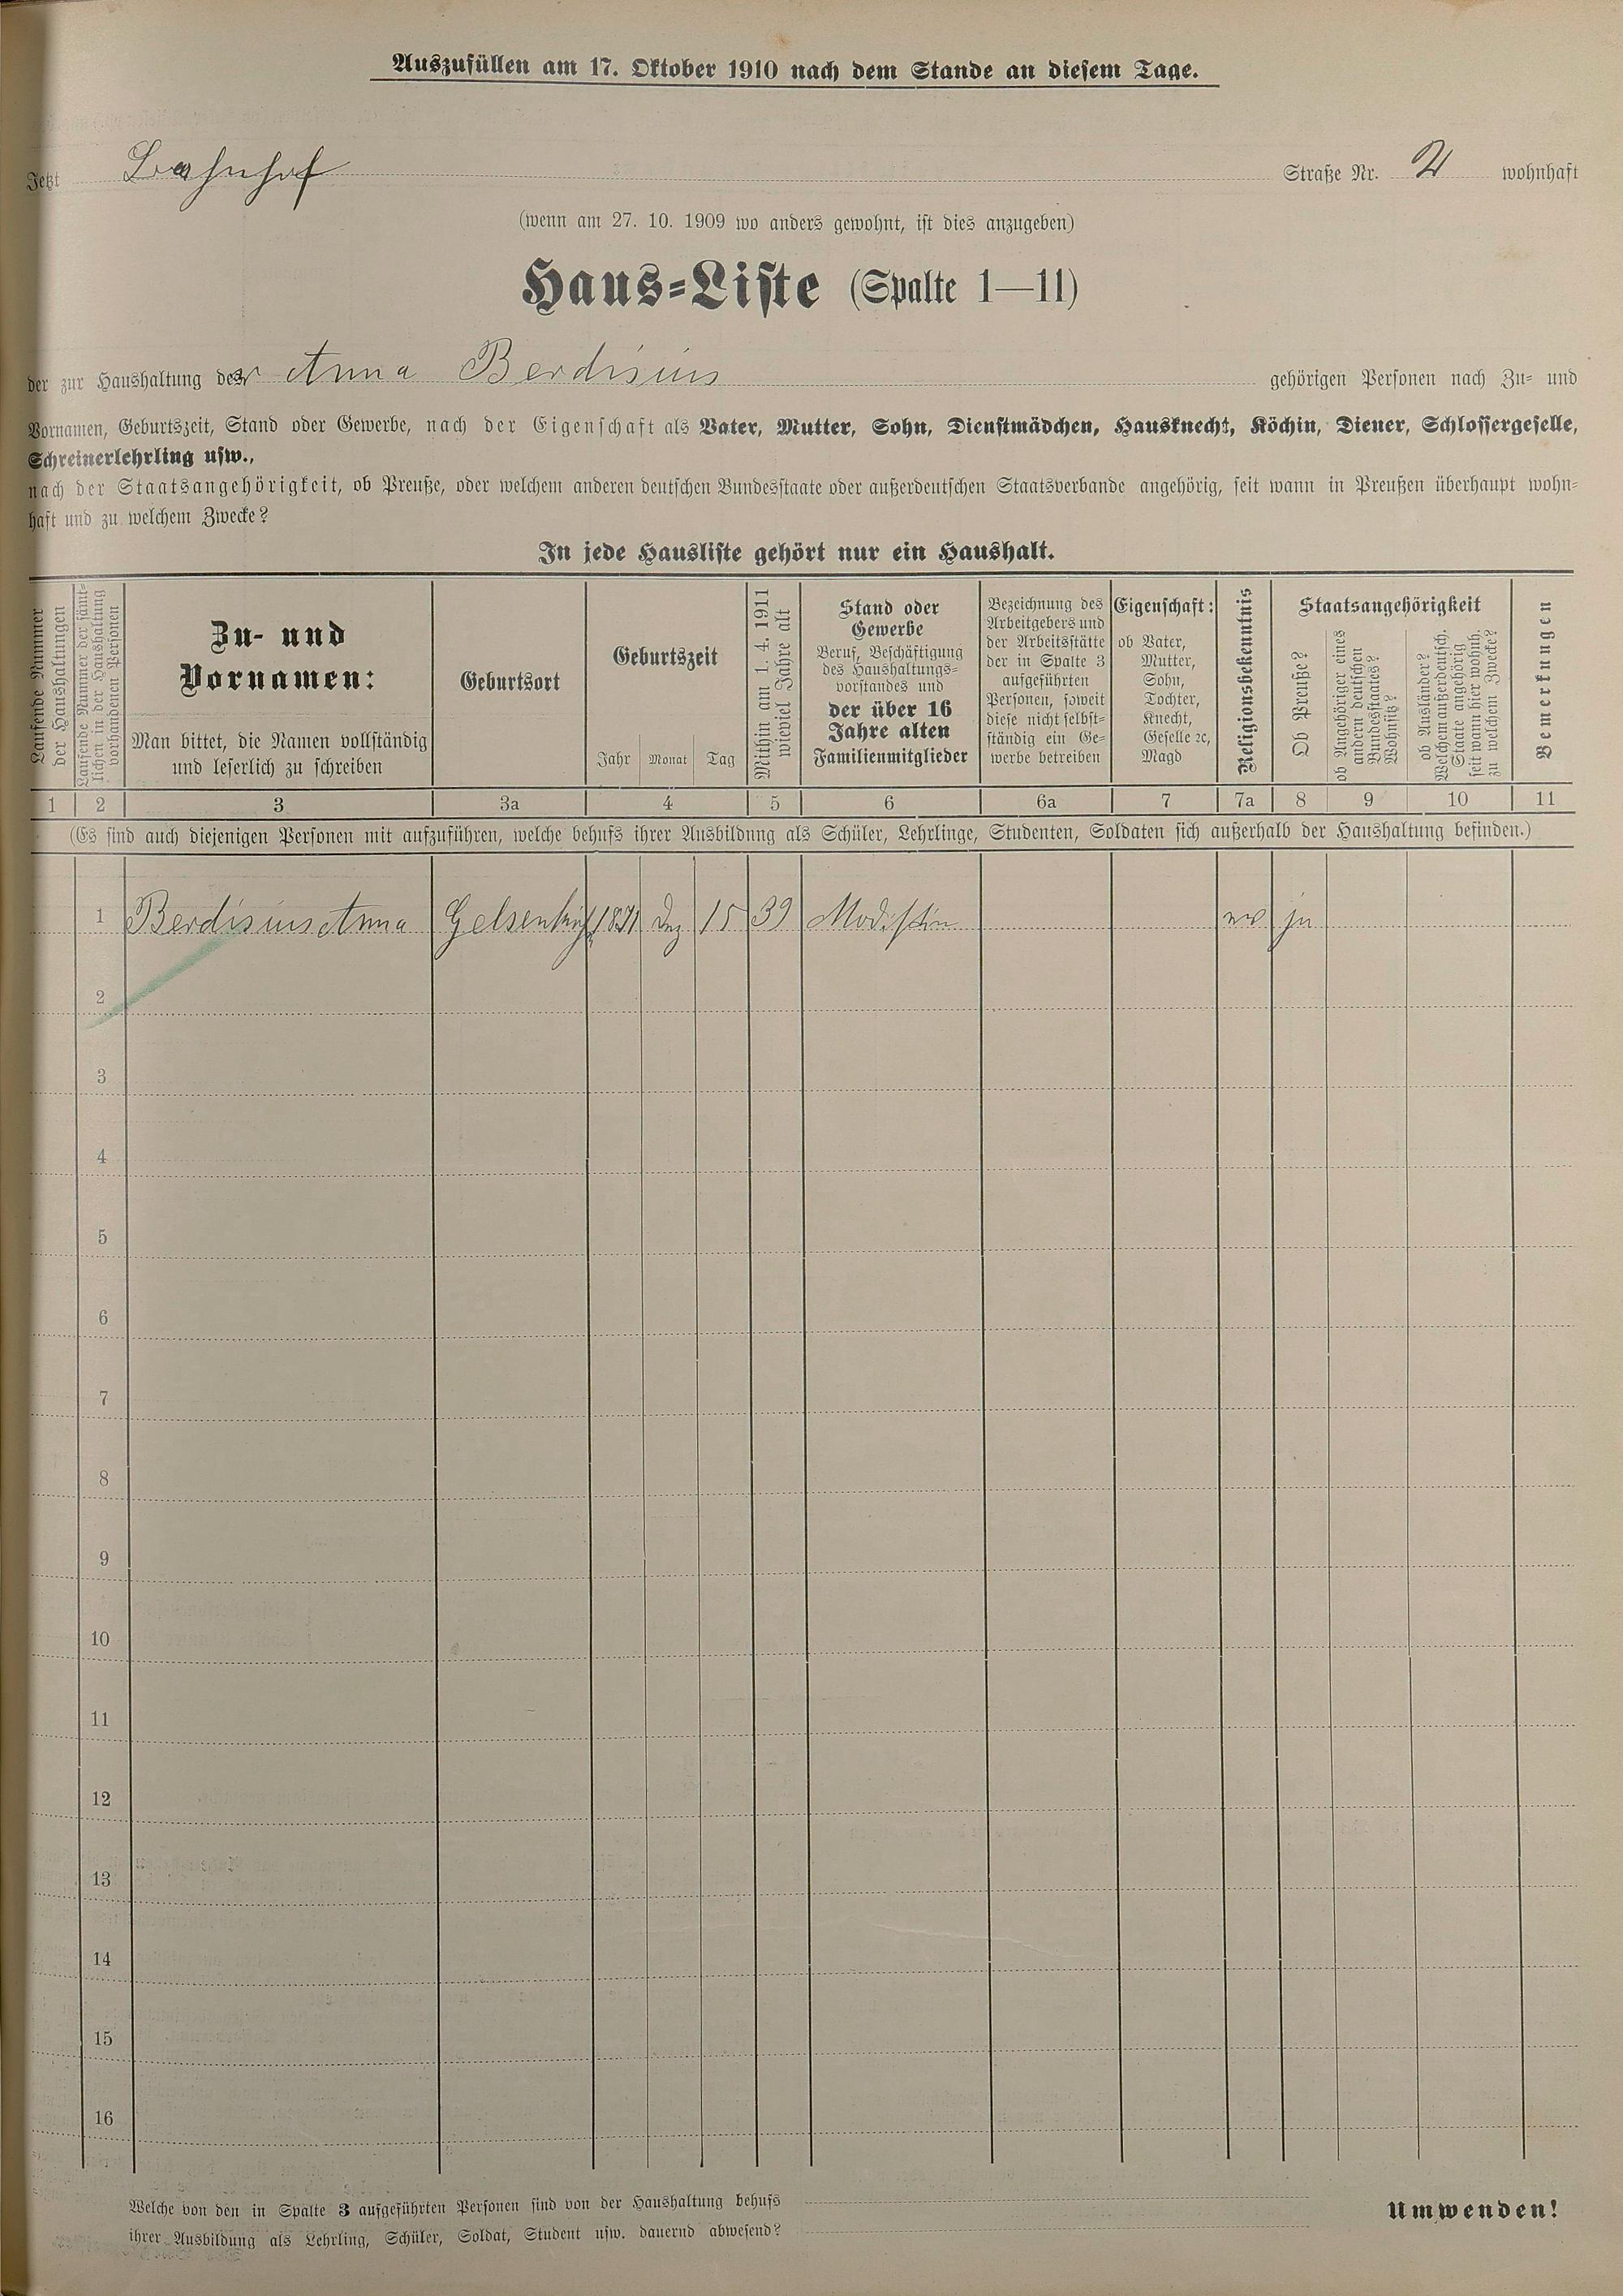 Auszufüllen am 17. Oktober 1910 nach dem Stande an diesem Tage.
Jetzt Bahnhof Straße Nr. 21 wohnhaft
(wenn am 27. 10. 1909 wo anders gewohnt, ist dies anzugeben)
Haus-Liste (Spalte 1—11)
der zur Haushaltung der Anna Berdisius gehörigen Personen nach Zu- und
Vornamen, Geburtszeit, Stand oder Gewerbe, nach der Eigenschaft als Vater, Mutter, Sohn, Dienstmädchen, Hausknecht, Köchin, Diener, Schlossergeselle,
Schreinerlehrling usw.,
nach der Staatsangehörigkeit, ob Preuße, oder welchem anderen deutschen Bundesstaate oder außerdeutschen Staatsverbande angehörig, seit wann in Preußen überhaupt wohn-
haft und zu welchem Zwecke?
In jede Hausliste gehört nur ein Haushalt.
Laufende Nummer
der Haushaltungen
Laufende Nummer der sämt-
lichen in der Haushaltung
vorhandenen Personen
Zu- und
Vornamen:
Man bittet, die Namen vollständig
und leserlich zu schreiben
Geburtsort
Geburtszeit
Jahr Monat Tag
Mithin am 1. 4. 1911
wieviel Jahre alt
Stand oder
Gewerbe
Beruf, Beschäftigung
des Haushaltungs-
vorstandes und
der über 16
Jahre alten
Familienmitglieder
Bezeichnung des
Arbeitgebers und
der Arbeitsstätte
der in Spalte 3
aufgeführten
Personen, soweit
diese nicht selbst-
ständig ein Ge-
werbe betreiben
Eigenschaft:
ob Vater,
Mutter,
Sohn,
Tochter,
Knecht,
Geselle ꝛc,
Magd
Religionsbekenntnis
Staatsangehörigkeit
Ob Preuße?
ob Angehöriger eines
andern deutschen
Bundesstaates?
Wohnsitz?
ob Ausländer?
Welchem außerdeutsch.
Staate angehörig
seit wann hier wohnh.
zu welchem Zwecke?
Bemerkungen
1 2 3 3a 4 5 6 6a 7 7a 8 9 10 11
(Es sind auch diejenigen Personen mit aufzuführen, welche behufs ihrer Ausbildung als Schüler, Lehrlinge, Studenten, Soldaten sich außerhalb der Haushaltung befinden.)
1 Berdisius Anna 1871 Dez 15 39 Modistin ev ja
2
3
4
5
6
7
8
9
10
11
12
13
14
15
16
Welche von den in Spalte 3 aufgeführten Personen sind von der Haushaltung behufs
ihrer Ausbildung als Lehrling, Schüler, Soldat, Student usw. dauernd abwesend?
Umwenden!